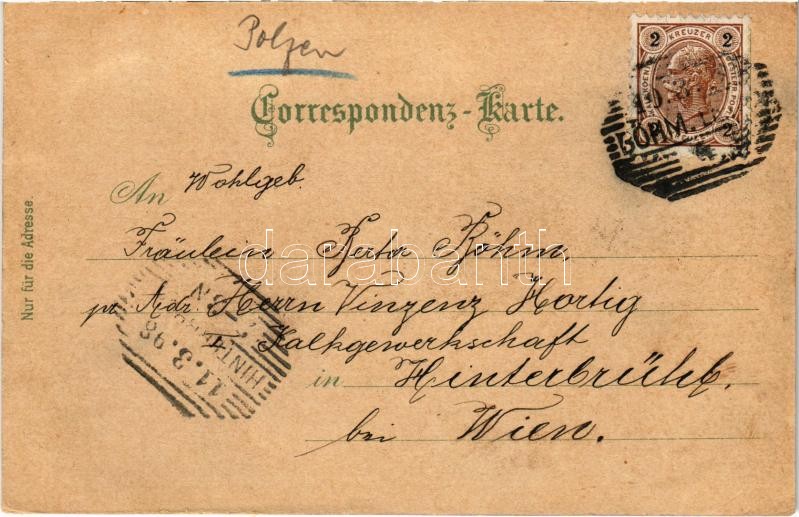 Polzen
2 KREUZER 2
2
BÖHM.
Correspondenz-Karte.
An Wohlgeb.
Fräulein Berta Böhm,
pr. Adr. Herrn Vinzenz Hortig
Kalkgewerkschaft
in Hinterbrühl,
bei Wien.
Nur für die Adresse.
11.3.98
HINTERBRÜHL
darabanth